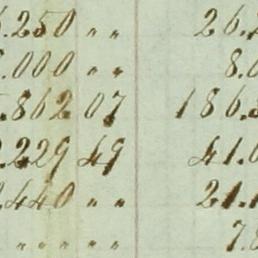 .250 〃〃 26.
.000 〃〃 8.
.862 07 186.
.229 49 41.
.440 〃〃 21.
〃〃〃〃〃 7.